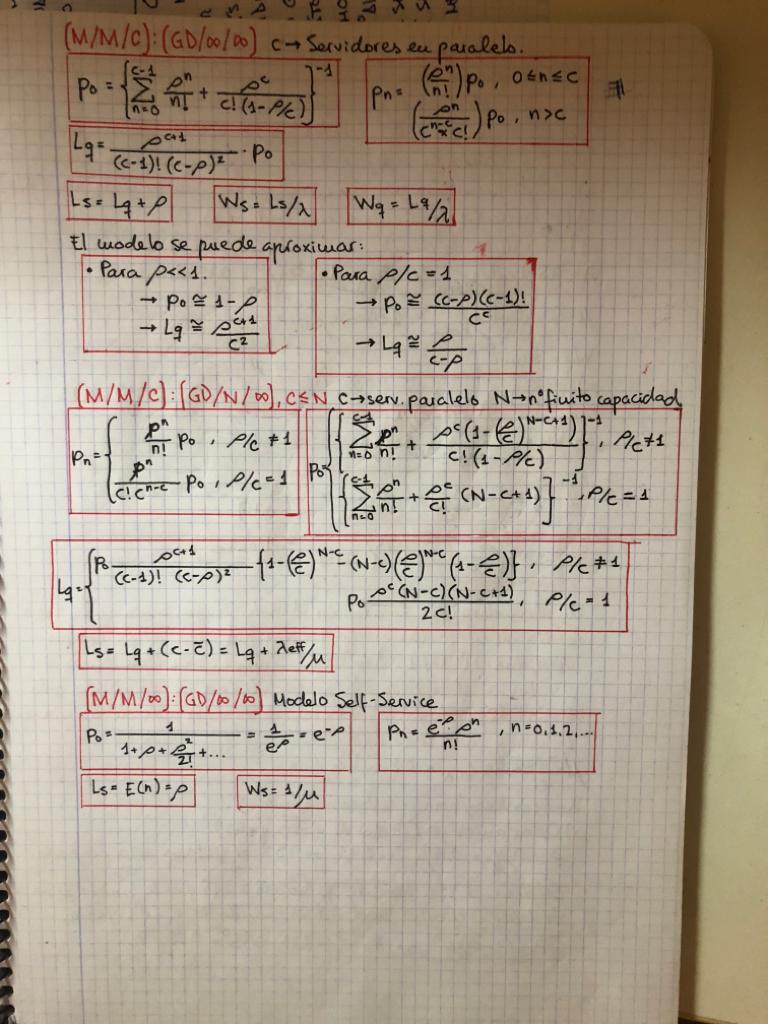 (M/M/C):(GD/∞/∞) C→ Servidores en paralelo.
p₀ = { Σ_{n=0}^{c-1} ρⁿ/n! + ρᶜ/(c!(1-ρ/c)) }⁻¹
pₙ = { (ρⁿ/n!) p₀ , 0≤n≤c
(ρⁿ/(c^{n-c} c!)) p₀ , n>c
Lq = ρ^{c+1}/((c-1)! (c-ρ)²) · p₀
Ls = Lq + ρ Ws = Ls/λ Wq = Lq/λ
El modelo se puede aproximar:
• Para ρ<<1.
→ p₀ ≅ 1-ρ
→ Lq ≅ ρ^{c+1}/c²
• Para ρ/c = 1
→ p₀ ≅ (c-ρ)(c-1)!/cᶜ
→ Lq ≅ ρ/(c-ρ)
(M/M/C):(GD/N/∞), C≤N C→serv. paralelo N→nº finito capacidad
pₙ = { ρⁿ/n! p₀ , ρ/c ≠ 1
ρⁿ/(c! c^{n-c}) p₀ , ρ/c = 1
p₀ = { { Σ_{n=0}^{c-1} ρⁿ/n! + ρᶜ(1-(ρ/c)^{N-c+1})/(c!(1-ρ/c)) }⁻¹ , ρ/c ≠ 1
{ Σ_{n=0}^{c-1} ρⁿ/n! + ρᶜ/c! (N-c+1) }⁻¹ , ρ/c = 1
Lq = { p₀ ρ^{c+1}/((c-1)! (c-ρ)²) {1-(ρ/c)^{N-c} - (N-c)(ρ/c)^{N-c} (1-ρ/c)} , ρ/c ≠ 1
p₀ ρᶜ(N-c)(N-c+1)/(2c!) , ρ/c = 1
Ls = Lq + (c-c̄) = Lq + λeff/μ
(M/M/∞):(GD/∞/∞) Modelo Self-Service
p₀ = 1/(1+ρ+ρ²/2!+...) = 1/e^ρ = e^{-ρ}
pₙ = e^{-ρ} ρⁿ/n! , n=0,1,2,...
Ls = E(n) = ρ Ws = 1/μ